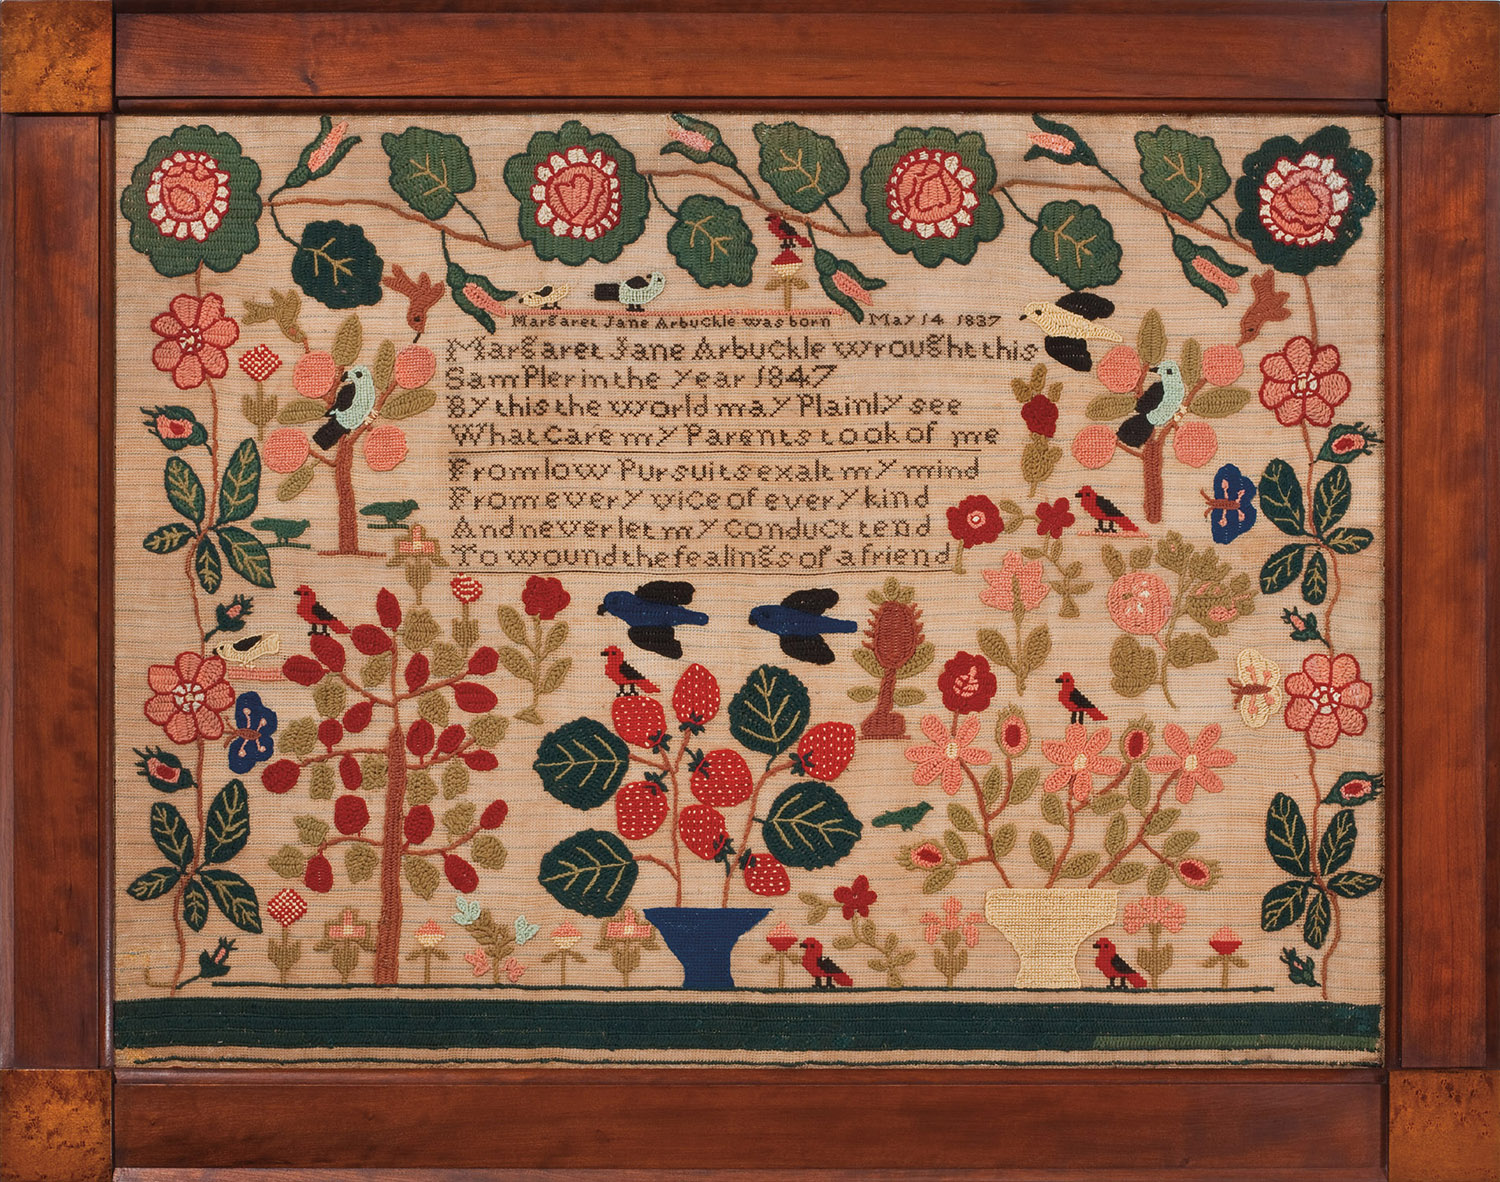 Margaret Jane Arbuckle was born May 14 1837
Margaret Jane Arbuckle wrought this
Sampler in the year 1847
By this the world may Plainly see
What Care my Parents took of me
From low Pursuits exalt my mind
From every vice of every kind
And never let my conduct tend
To wound the fealings of a friend